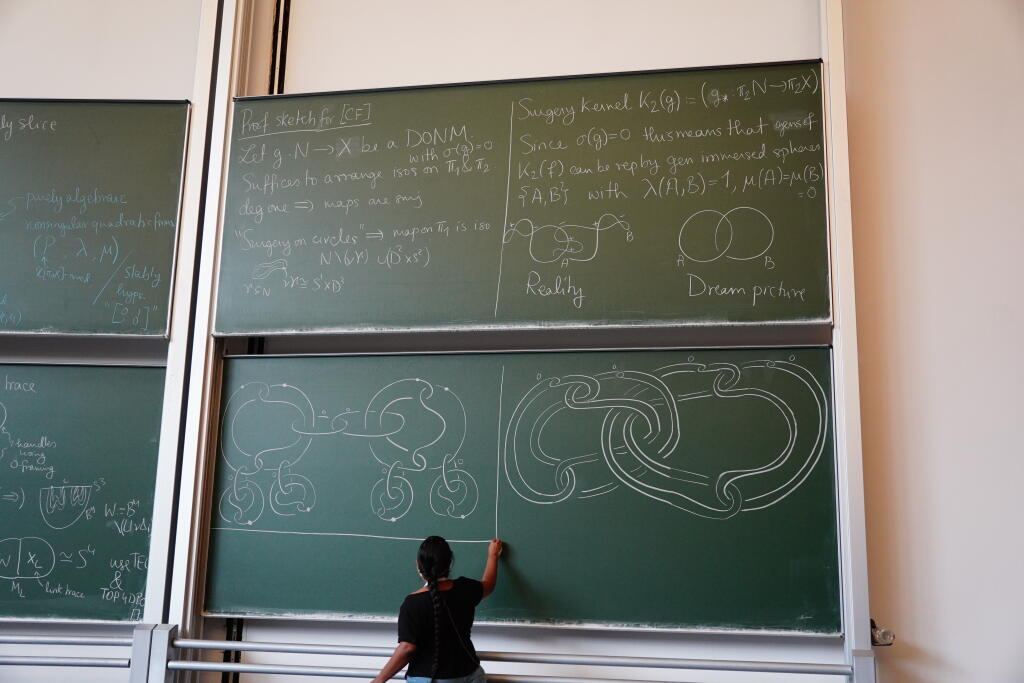 ly slice
purely algebraic
nonsingular quadratic forms
(P, λ, μ)
stably
hyp
trace
handles
using
0-framing
⇒)
S³
B⁴
W = B⁴
X_L ≃ S⁴
use
&
M_L
link trace
Proof sketch for [CF]
Let g: N → X be a DONM
with σ(g)=0
Suffices to arrange isos on π₁ & π₂
deg one ⇒ maps are surj
"Surgery on circles" ⇒ map on π₁ is iso
N\(νγ) ∪(D²×S²)
γ⊆N νγ ≅ S¹×D³
Surgery kernel K₂(g) := (g* : π₂N → π₂X)
Since σ(g)=0 this means that gens of
K₂(f) can be rep by gen immersed spheres
{A,B} with λ(A,B)=1, μ(A)=μ(B)
=0
A B
Reality
A B
Dream picture
0 0 0 0 0 0 0
0 0 0 0